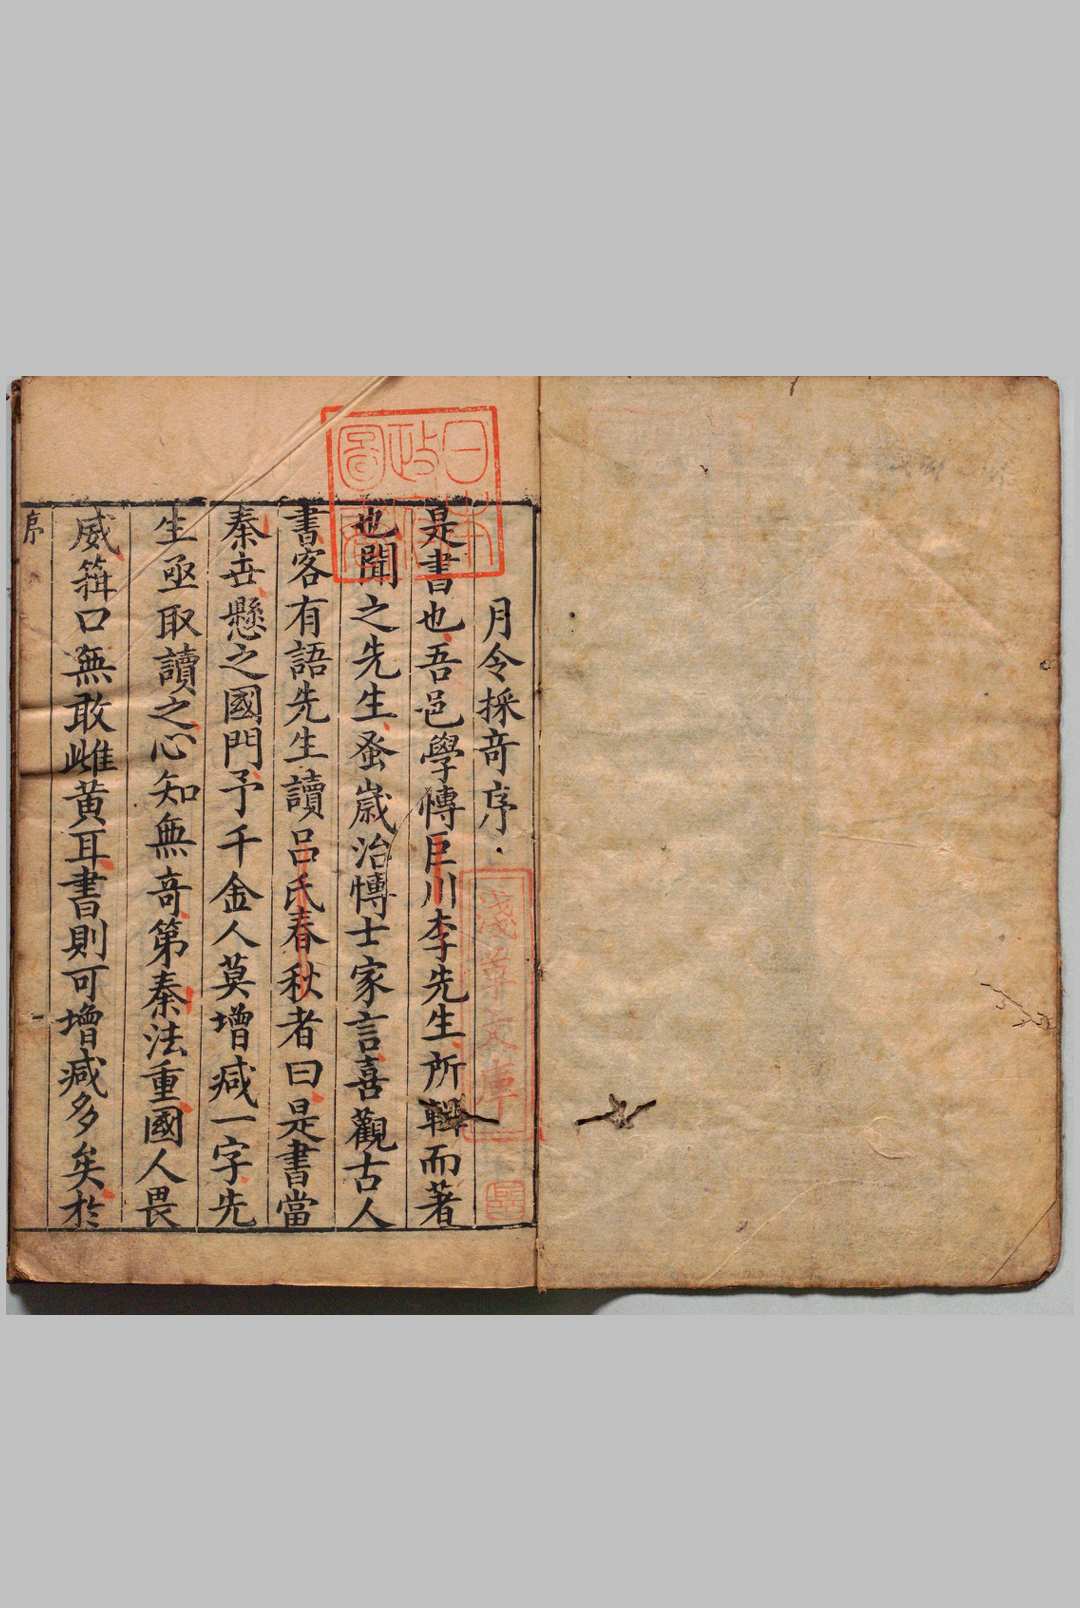 月令採奇序
是書也吾邑學博巨川李先生所輯而著
也聞之先生蚤歲治博士家言喜觀古人
書客有語先生讀呂氏春秋者曰是書當
秦世懸之國門予千金人莫增減一字先
生亟取讀之心知無奇第秦法重國人畏
威箝口無敢雌黃耳書則可增減多矣於
序
日本政府圖書
淺草文庫